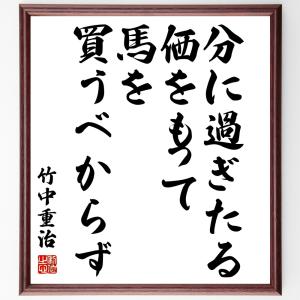 分に過ぎたる
価をもって
馬を
買うべからず
竹中重治